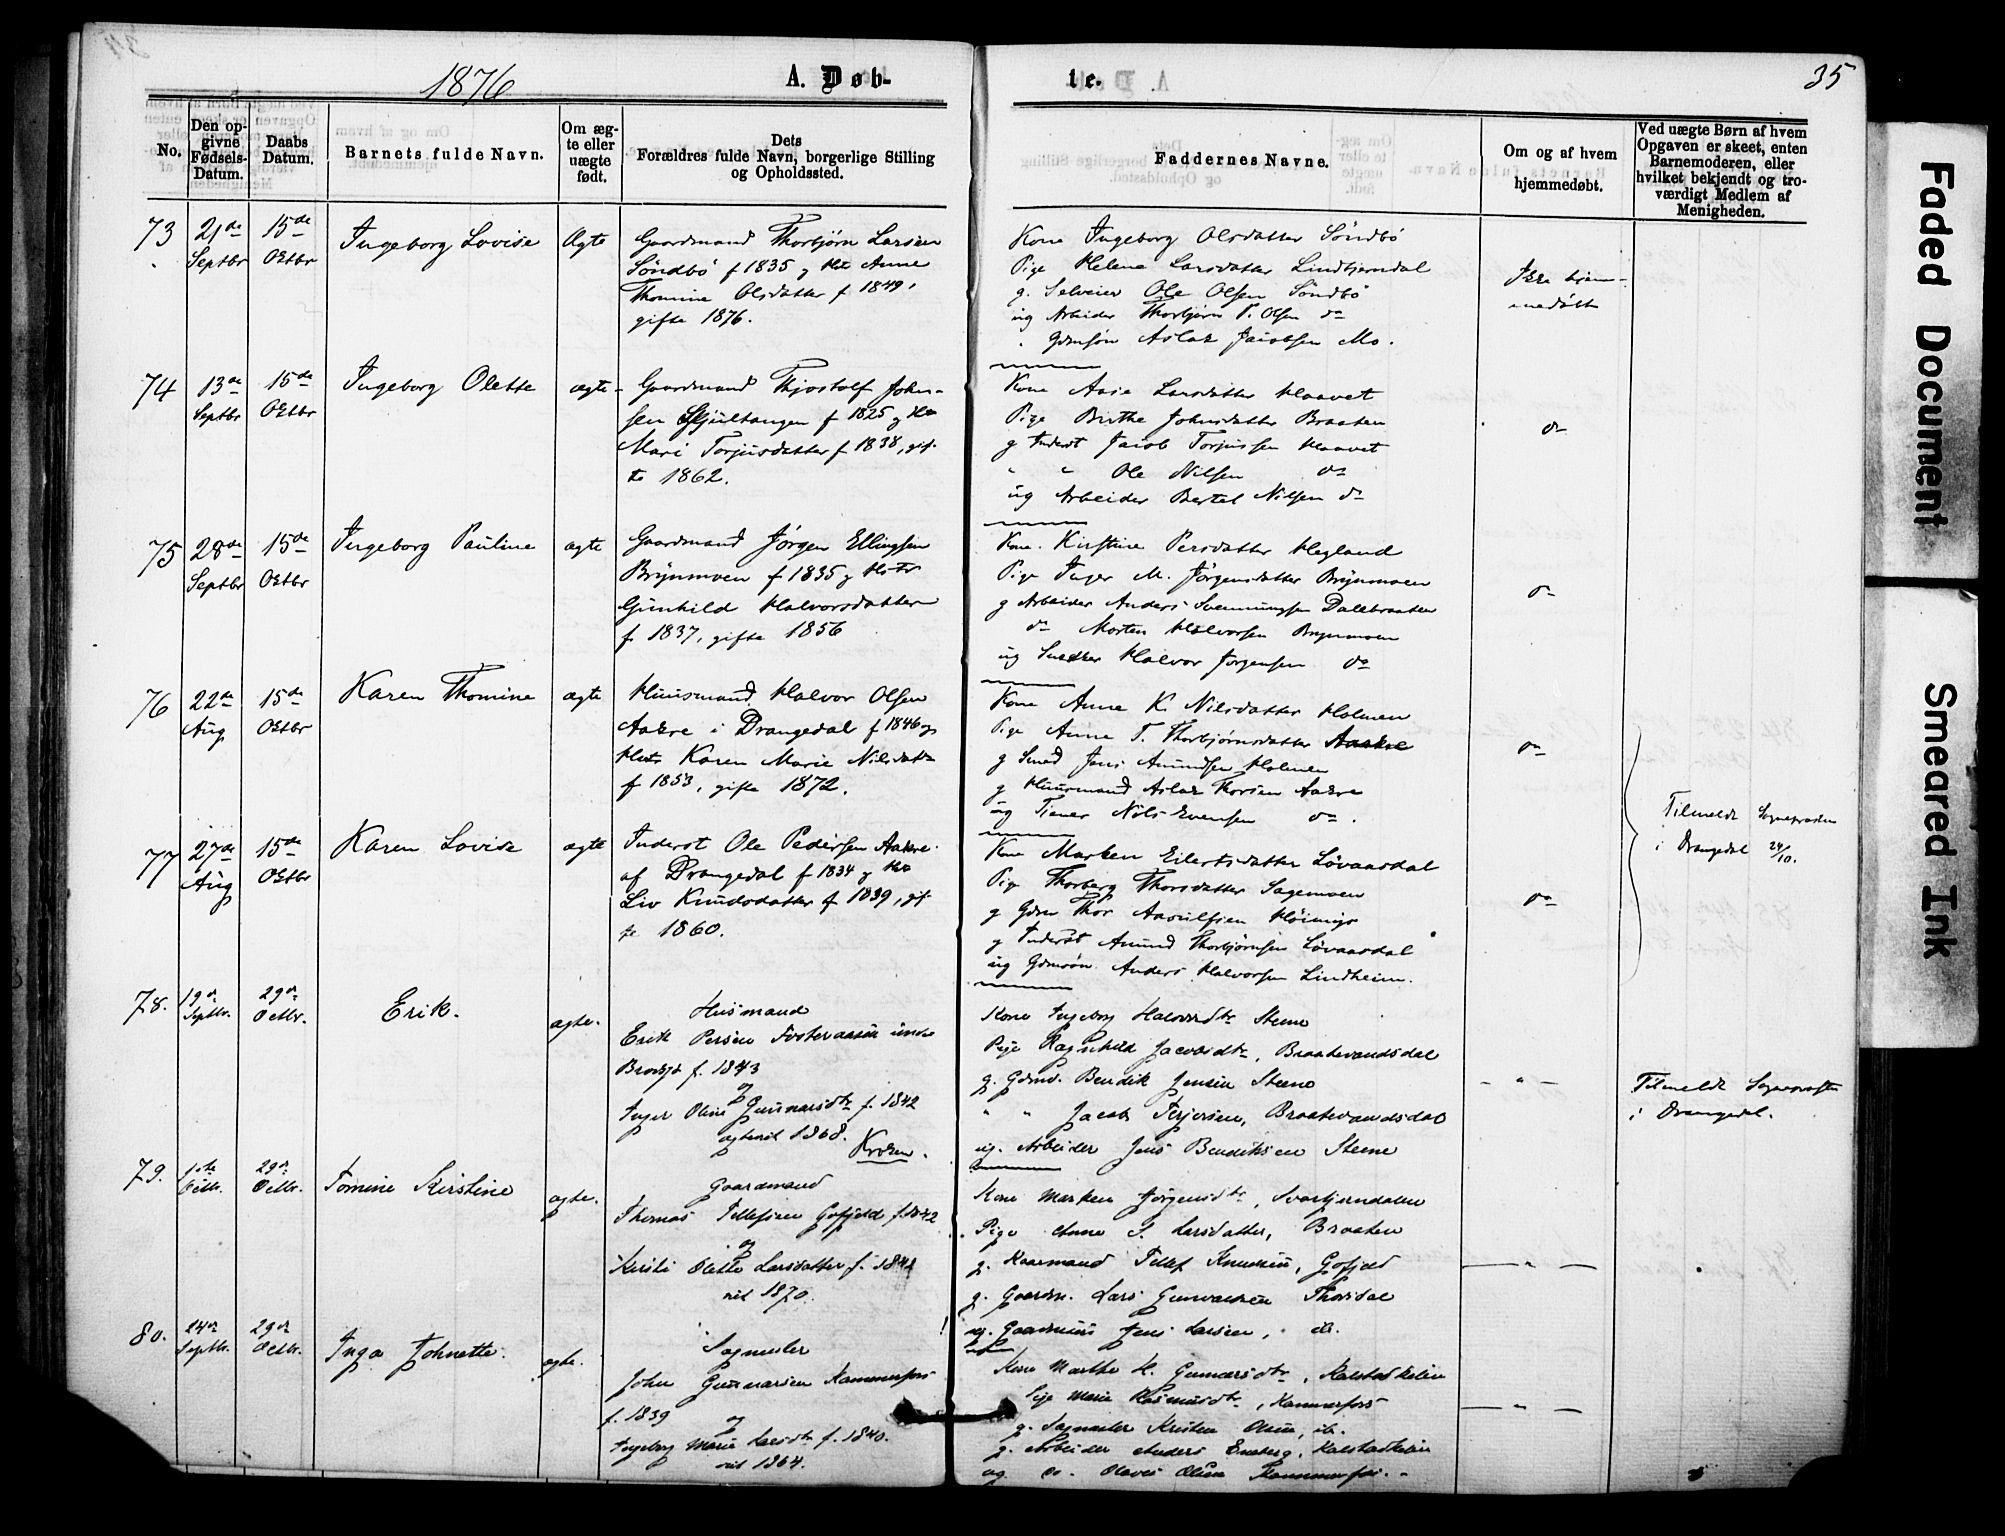 1876
A. Døb-
te.
35
No.
Den op-
givne
Fødsels-
Datum.
Daabs
Datum.
Barnets fulde Navn.
Om æg-
te eller
uægte
født.
Dets
Forældres fulde Navn, borgerlige Stilling
og Opholdssted.
Faddernes Navne.
Om og af hvem
hjemmedøbt.
Ved uægte Børn af hvem
Opgaven er skeet, enten
Barnemoderen, eller
hvilket bekjendt og tro-
værdigt Medlem af
Menigheden.
73
21de
Septbr
15de
Octbr
Ingeborg Lovise
Ægte
Gaardmand Thorbjørn Larsen
Søndbø f 1835 og Hst Anne
Thomine Olsdatter f 1849,
gifte 1876.
Kone Ingeborg Olsdatter Søndbø
Pige Helene Larsdatter Lindtjerndal
g. Selveier Ole Olsen Søndbø
ug Arbeider Thorbjørn P. Olsen do
Gdmsøn Aslak Jacobsen Mo.
Ikke hjem-
medøbt
74
13de
Septbr
15de
Octbr
Ingeborg Olette
ægte
Gaardmand Thjostolf John-
sen f 1825 og Hst
Mari Torjusdatter f 1838, gif-
te 1862.
Kone Aase Larsdatter Haavet
Pige Birthe Johnsdatter Braaten
g Inderst Jacob Torjussen Haavet
" " Ole Nilsen do
ug Arbeider Bertel Nilsen do
do
75
28de
Septbr
15de
Octbr
Ingeborg Pauline
ægte
Gaardmand Jørgen Ellingsen
Brynmoen f 1835 og Hstr
Gunhild Halvorsdatter
f. 1837, gifte 1856
Kone Kirstine Persdatter Hegland
Pige Inger M. Jørgensdatter Brynmoen
g Arbeider Anders Svennungsen Dalebraaten
do Morten Halvorsen Brynmoen
ug Snedker Halvor Jørgensen do
do
76
22de
Aug
15de
Octbr
Karen Thomine
ægte
Huusmand Halvor Olsen
Aakre i Drangedal f 1846 og
Hst Karen Marie Nilsdatter
f 1853, gifte 1872.
Kone Anne K. Nilsdatter Holmen
Pige Anne T. Thorbjørnsdatter Aakre
g Smed Jens Amundsen Holmen
g Huusmand Aslak Thorsen Aakre
ug Tiener Nils Evensen do.
do
Tilmeldt Sognepræsten
i Drangedal 24/10.
77
27de
Aug
15de
Octbr
Karen Lovise
ægte
Inderst Ole Pedersen Aakre
af Drangedal f 1834 og Hst
Liv Knudsdatter f 1839, gif-
te 1860.
Kone Marken Eilertsdatter Løvaasdal
Pige Thorberg Thorsdatter Sagemoen
g Gdm Thor Aasulfsen
g Inderst Amund Thorbjørnsen Løvaasdal
ug Gdmsøn Anders Halvorsen Lindheim.
do
78.
19de
Septbr.
29de
Octbr.
Erik.
ægte.
Husmand
Erik Persen under
f. 1843
og
Inger Oline Gunnarsdtr f. 1842
ægteviet 1868. Kroken.
Kone Ingeborg Halvorsdtr Steene
Pige Ragnhild Jacobsdtr, Braatevandsdal
g. Gdmd. Bendik Jensen Steene
" " Jacob Terjesen, Braatevandsdal
ug. Arbeider Jens Bendiksen Steene
- " -
Tilmeldt Sognepræsten
i Drangedal.
79.
1ste
Octbr.
29de
Octbr.
Tomine Kirstine
ægte.
Gaardmand
Thomas Tellefsen Gofjeld f. 1842
og
Kirsti Olette Larsdatter f. 1841
viet 1870.
Kone Marken Jørgensdtr, Svartjerndalen
Pige Anne S. Larsdatter, Braaten
g. Kaarmand Tellef Knudsen, Gofjeld
g. Gaardm. Lars Gunvaldsen Thorsdal
ug. Jens Larsen, do.
- " -
80.
24de
Septbr.
29de
Octbr.
Inga Johnette.
ægte.
Sagmester
John Gunnarsen Kammerfos
f. 1839
og
Ingeborg Marie Larsdtr f. 1840.
viet 1864.
Kone Marthe H. Gunnarsdtr, Kalstadkilen
Pige Marie Rasmusdtr, Kammerfos
g. Sagmester Kristen Olsen, do.
g. Arbeider Anders Eneberg, Kalstadkilen
ug do. Olaves Olsen Kammerfos.
- " -
Faded Document
Smeared Ink